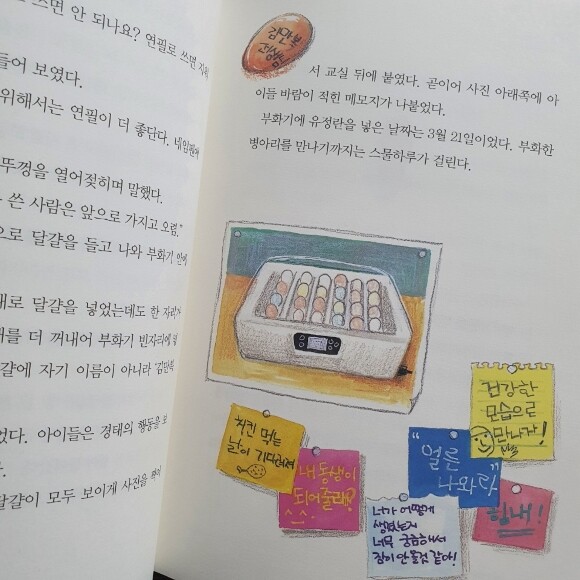 쓰면 안 되나요? 연필로 쓰면
들어 보였다.
위해서는 연필이 더 좋단다. 네임펜이
뚜껑을 열어젖히며 말했다.
쓴 사람은 앞으로 가지고 오렴."
으로 달걀을 들고 나와 부화기 안에
대로 달걀을 넣었는데도 한 자리가
를 더 꺼내어 부화기 빈자리에
달걀에 자기 이름이 아니라 '김만복
었다. 아이들은 경태의 행동을 보
달걀이 모두 보이게 사진을 찍어
김만복
선생님
서 교실 뒤에 붙였다. 곧이어 사진 아래쪽에 아
이들 바람이 적힌 메모지가 나붙었다.
부화기에 유정란을 넣은 날짜는 3월 21일이었다. 부화한
병아리를 만나기까지는 스물하루가 걸린다.
치킨 먹는
날이 기다려져
내 동생이
되어줄래?
^^
너가 어떻게
생겼는지
너무 궁금해서
잠이 안 올것 같아!
"얼른
나와라"
건강한
모습으로
만나자!
힘내!